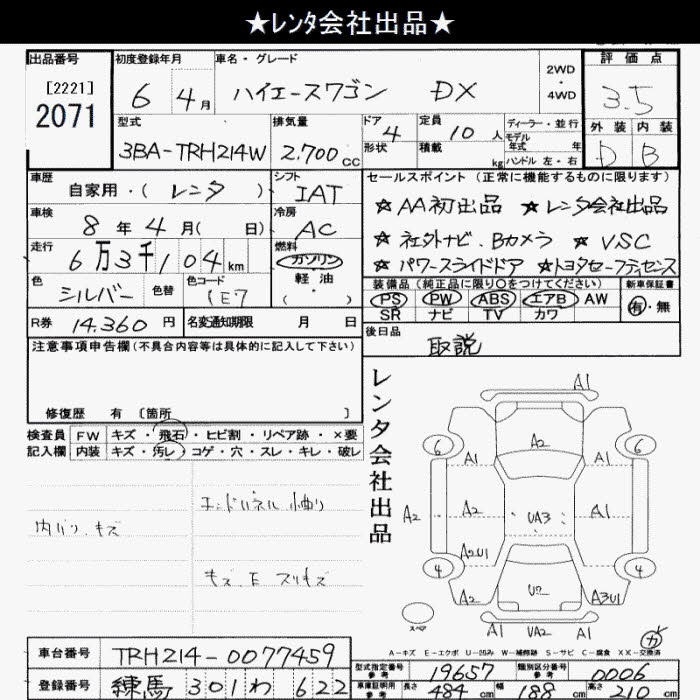 ★レンタ会社出品★
出品番号 初度登録年月 車名・グレード 評価点
[2221]
2071
6 4月 ハイエースワゴン DX 2WD・4WD 3.5
型式 排気量 ドア 定員 ディーラー・並行 外装 内装
3BA-TRH214W 2,700cc 4 10人 モデル年式 年 D B
形状 積載 kg ハンドル 左・右
車歴 シフト セールスポイント (正常に機能するものに限ります)
自家用・(レンタ) IAT ★AA初出品 ★レンタ会社出品
車検 冷房
8年4月(日) AC ★社外ナビ、Bカメラ ★VSC
走行 燃料
6万3千104km ガソリン ★パワースライドドア ★トヨタセーフティセンス
軽油
色 色替 色コード ( ・ ) 装備品(純正品に限り○をつけてください) 新車保証書
シルバー 1E7 PS PW ABS エアB AW 有・無
SR ナビ TV カワ
R券 14,360円 名変通知期限 月 日 後日品
取説
注意事項申告欄(不具合内容等は具体的に記入して下さい)
修復歴 有 〔箇所 〕
検査員 FW キズ・飛石・ヒビ割・リペア跡・×要
記入欄 内装 キズ・汚レ・コゲ・穴・スレ・キレ・破レ
エンドパネル 小曲り
内バリ、キズ
キズ、E スリキズ
レンタ会社出品
A1
6 A2 6
A1 A1
A2 A2 UA3 A1
A2U1
4 U2 4
A2 A3U1
スペア A1 UA2 A1 カ
A-キズ E-エクボ U-凹み W-補修跡 S-サビ C-腐食 XX-交換済
車台番号 TRH214-0077459 型式指定番号 参考 19657 類別区分番号 参考 0006
登録番号 練馬 301 わ 622 車庫証明用 参考 長さ 484cm 幅 188cm 高さ 210cm